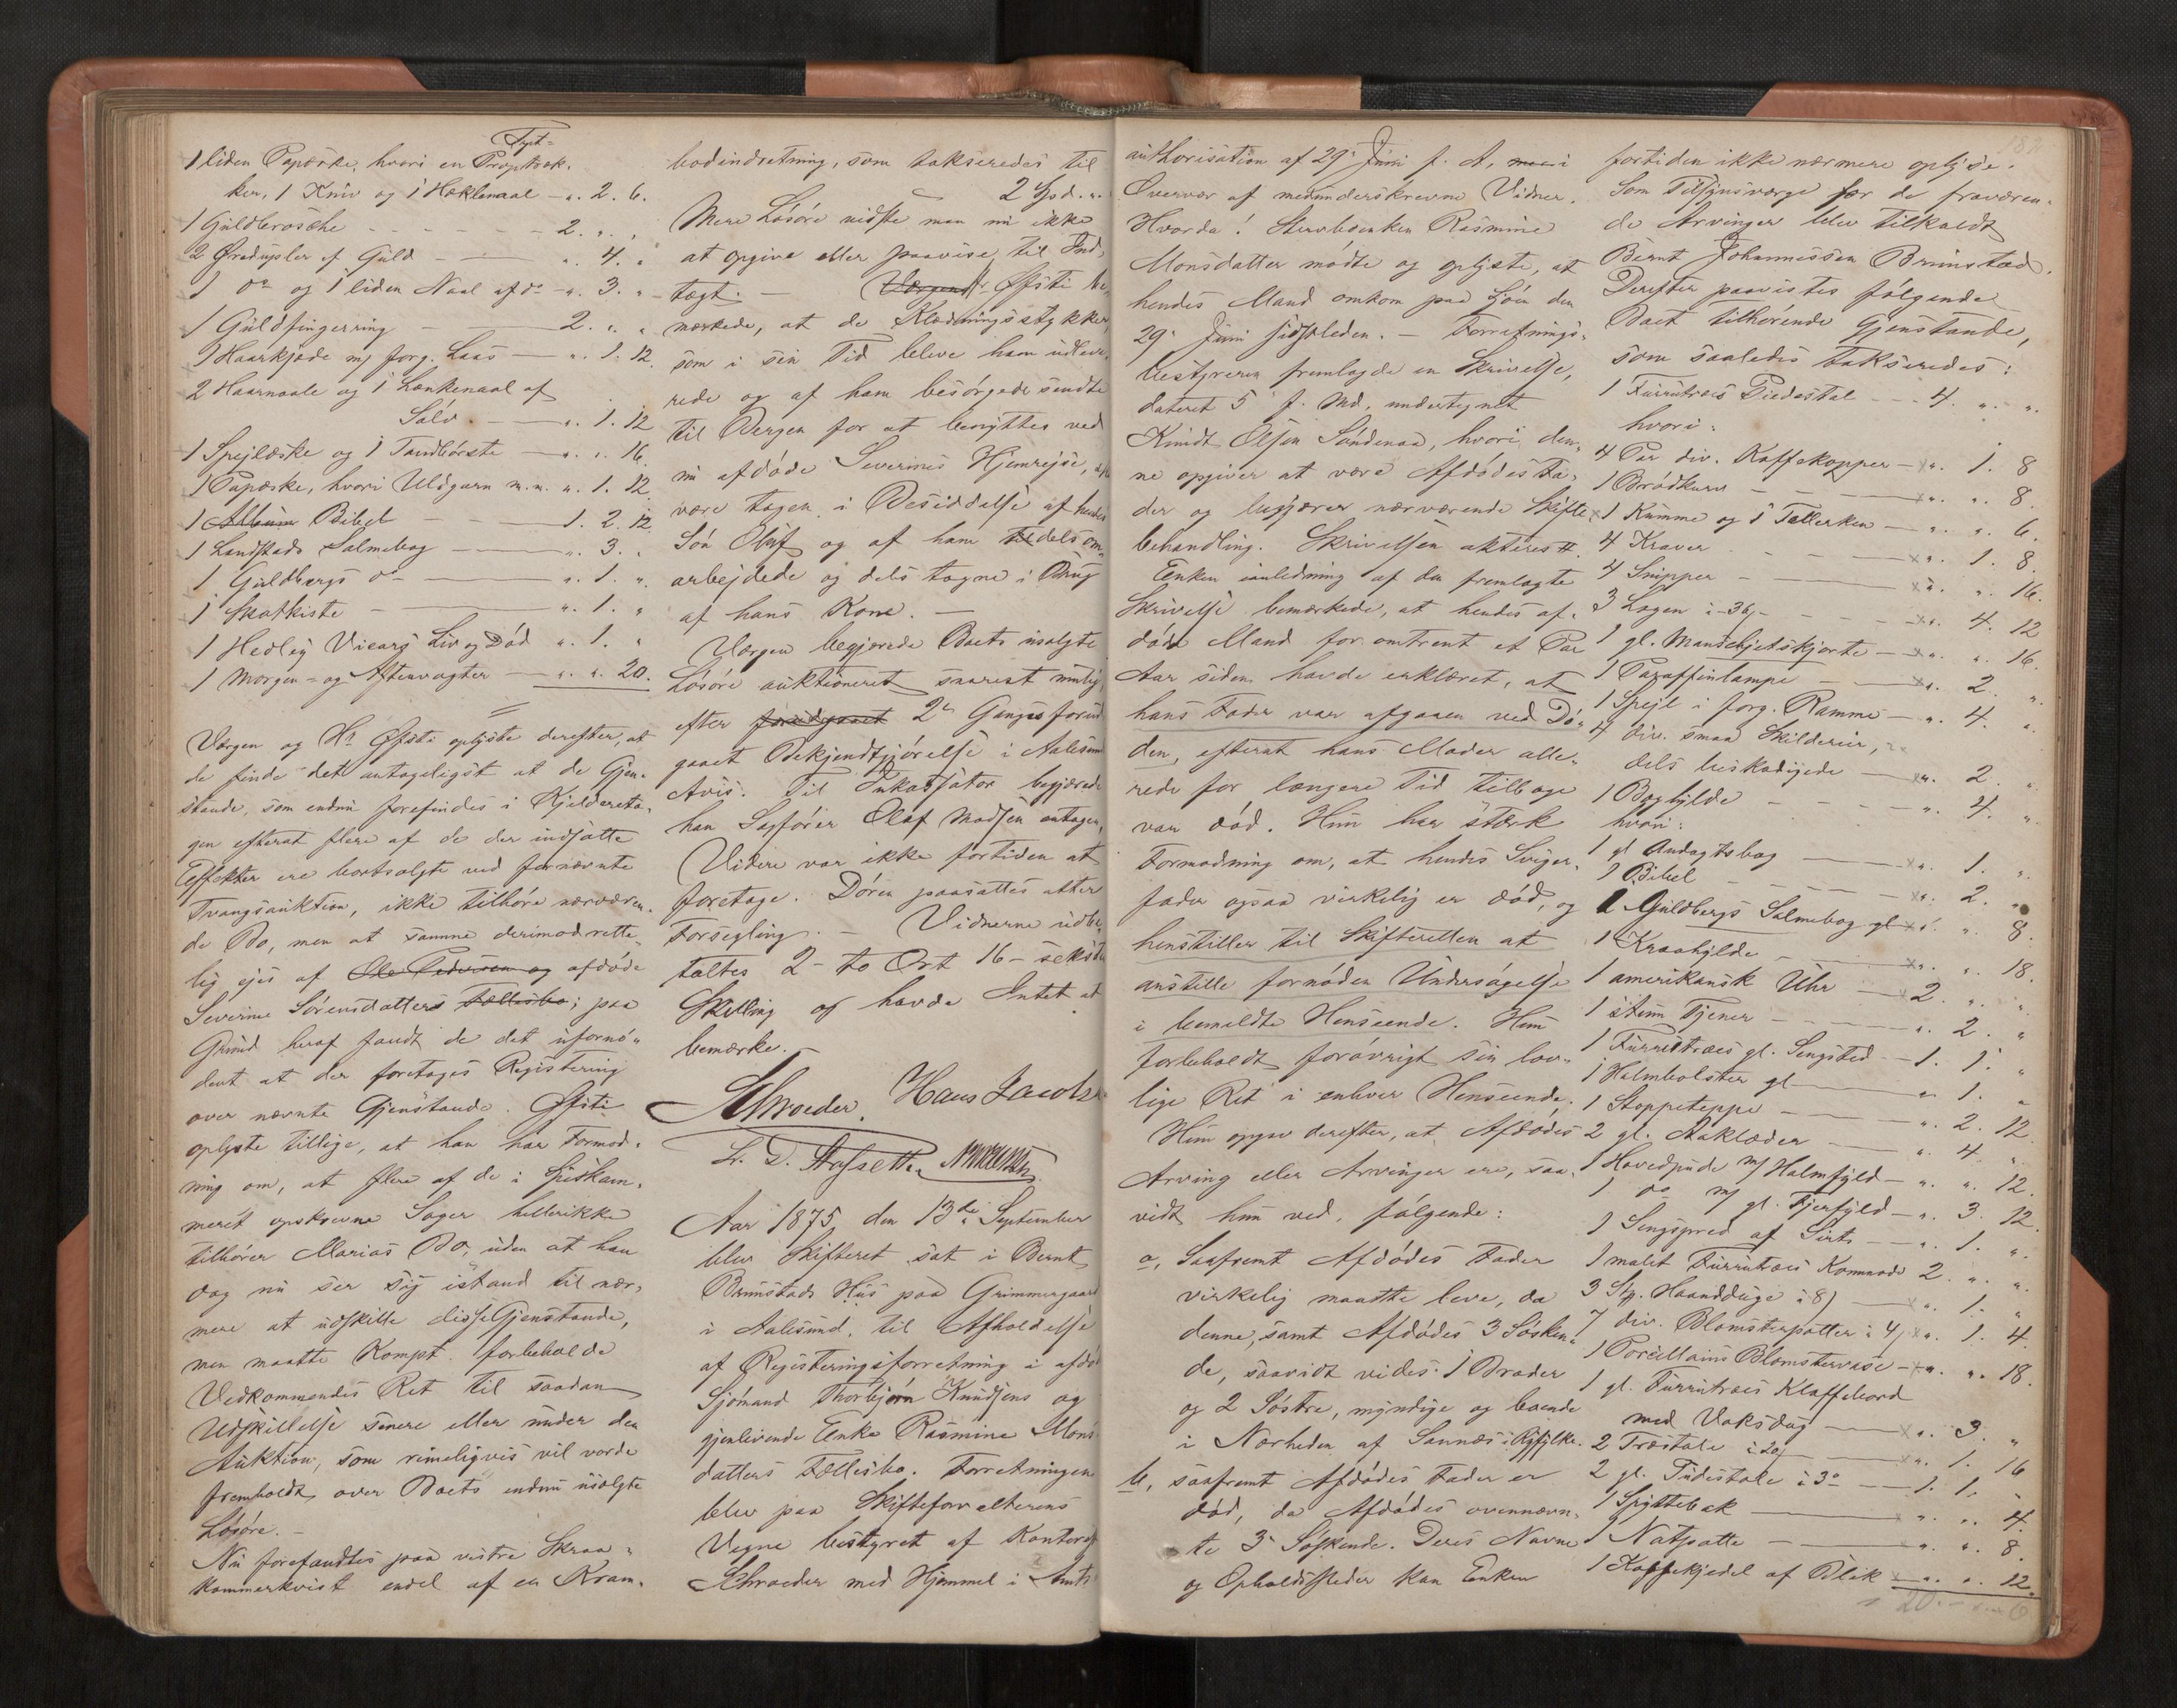 1 liden Papæske, hvori en Proptræk-
ker, 1 Kniv og 1 Heklenaal — „. 2. 6.
1 Guldbrosche — 2. „. „
2 Øredupler af Guld — „. 4. „
1 do og 1 liden Naal af do — „. 3. „
1 Guldfingerring — 2. „. „
1 Haarkjæde m/ forg. Laas — „. 1. 12.
2 Haarnaale og 1 Lænkenaal af
Sølv. — „. 1. 12
1 Spejlæske og 1 Tandbørste — „. „. 16.
1 Papæske, hvori Uldgarn m.m. „. 1. 12.
1 Album Bibel — 1. 2. 12
1 Landstads Salmebog — „. 3. „
1 Guldbergs do — „. 1. „
1 Skatkiste — „. 1. „
1 Hedley Vicars Liv og Død „. 1. „
1 Morgen- og Aftenvagter — „. „. 20.
Værgen og Hr Øfsti oplyste derefter, at
de finde det antageligst at de Gjen-
stande, som endnu forefindes i Kjeldereta-
gen efterat flere af de der indsatte
Effekter ere bortsolgte ved fornævnte
Tvangsauktion, ikke tilhøre nærværen-
de Bo, men at samme derimod rette-
lig ejes af Ole Pedersen og afdøde
Severine Sørensdatters Fællesbo; paa
Grund heraf fandt de det ufornø-
dent at der foretages Registering
over nævnte Gjenstande. Øfsti
oplyste tillige, at han har Formod-
ning om, at flere af de i Spiskam-
meret opskrevne Sager hellerikke
tilhører Marias Bo, uden at han
dog nu ser sig istand til nær-
mere at udskille disse Gjenstande,
men maatte Kompt. forbeholde
Vedkommendes Ret til saadan
Udskillelse senere eller under den
Auktion, som rimeligvis vil vorde
fremholdt over Boets endnu usolgte
Løsøre. —
Nu forefandtes paa vestre Skraa-
kammerkvist endel af en Kram-
bodindretning, som takseredes til
2 Spd. „.
Mere Løsøre vidste man nu ikke
at opgive eller paavise til Ind-
tægt. — Værgen Hr Øfsti be-
mærkede, at de Klædningsstykker,
som i sin Tid bleve ham udleve-
rede og af ham besørgede sendte
til Bergen for at benyttes ved
nu afdøde Severines Hjemrejse,
være tagen i Besiddelse af hendes
Søn Oluf og af ham tildels om-
arbejdede og dels tagne i Brug
af hans Kone. —
Værgen begjærede Boets usolgte
Løsøre auktioneret snarest mulig,
efter foreudgaaet 2de Gangs forud-
gaaet Bekjendtgjørelse i Aalesunds
Avis. Til Inkassator begjærede
han Sagfører Olaf Madsen antagen.
Videre var ikke fortiden at
foretage. Døren paasattes atter
Forsegling. — Vidnerne udbe-
taltes 2 - to Ort 16 - seksten
Skilling og havde Intet at
bemærke. —
Schroeder. Hans Jacobsen
Aar 1875, den 13de September
blev Skifteret sat i Bernt
Brunstads Hus paa Grimmergaard
i Aalesund til Afholdelse
af Registeringsforretning i afdøde
Sjømand Thorbjørn Knudsens og
gjenlevende Enke Rasmine Mons-
datters Fællesbo. Forretningen
blev paa Skifteforvalterens
Vegne bestyret af Kontorist
Schroeder med Hjemmel i Amts-
authorisation af 29de Juni f. A. i
Overvær af medunderskrevne Vidner.
Hvorda! Stervboenken Rasmine
Monsdatter mødte og oplyste, at
hendes Mand omkom paa Sjøen den
29de Juni sidstleden. — Forretnings-
bestyreren fremlagde en Skrivelse,
dateret 5 f. Md, undertegnet
Knudt Olsen Søndenaa, hvori den-
ne opgiver at være Afdødes Fa-
der og begjærer nærværende Skifte-
behandling. Skrivelsen akteres #.
Enken ianledning af den fremlagte
Skrivelse bemærkede, at hendes af-
døde Mand for omtrent et Par
Aar siden havde erklæret, at
hans Fader var afgaaen ved Dø-
den, efterat hans Moder alle-
rede for længere Tid tilbage
var død. Hun har stærk
Formodning om, at hendes Sviger-
fader ogsaa virkelig er død, og
henstiller til Skifteretten at
anstille fornøden Undersøgelse
i bemeldte Henseende. Hun
forbeholdt forøvrigt sin lov-
lige Ret i enhver Henseende.
Hun opgav derefter, at Afdødes
Arving eller Arvinger ere, saa-
vidt hun ved, følgende:
a, Saafremt Afdødes Fader
virkelig maatte leve, da
denne, samt Afdødes 3 Søsken-
de, saavidt vides 1 Broder
og 2 Søstre, myndige og boende
i Nærheden af Sannæs i Ryfylke.
b, saafremt Afdødes Fader er
død, da Afdødes ovennævn-
te 3 Søskende. Deres Navne
og Opholdssteder kan Enken
fortiden ikke nærmere oplyse.
Som Tilsynsværge for de fraværen-
de Arvinger blev tilkaldt
Bernt Johannessen Brunstad.
Derefter paavistes følgende
Boet tilhørende Gjenstande,
som saaledes takseredes:
1 Furrutræs Piedestal — 4. „. „.
hvori:
4 Par div. Kaffekopper — „. 1. 8
1 Brødkurv — „. „. 8.
1 Kumme og 1 Tallerken — „. „. 6.
4 Kraver — „. 1. 8.
4 Snipper — „. „. 16.
3 Lagen à 36/ — „. 4. 12
1 gl. Manschjetskjorte — „. „. 16.
1 Paraffinlampe — „. 2. „.
1 Spejl i forg. Ramme — „. 4. „.
4 div. smaa Skilderier,
dels beskadigede — „. 2. „.
1 Boghylde — „. 4. „.
hvori:
1 gl Andagtsbog — „. 1. „.
1 Bibel — „. 2. „.
1 Guldbergs Salmebog gl „. „. 8.
1 Kraahylde — „. „. 18.
1 amerikansk Uhr — 2. „. „.
1 stum Tjener — „. 2. „
1 Furrutræs gl. Sengsted — 1. 1. „
1 Halmbolster gl — „. 1. „
1 Stoppeteppe — „. 2. 12.
2 gl. Aaklæder — „. 4. „
1 Hovedpude m/ Halmfyld — „. „. 12.
1 do m/ gl. Fjerfyld — „. 3. 12.
1 Sengspred af Sirts — „. 1. „.
1 malet Furrutræs Kommode 2. „. „.
3 Stk. Haandduge à 8/ — „. 1. „
7 div. Blomsterpotter à 4/ „. 1. 4.
1 Porcellains Blomstervase — „. „. 18.
1 gl. Furrutræs Klaffebord
med Voksdug — „. 3. „
2 Træstole à 20/ — „. 1. 16
2 gl. Pudestole à 3 — 1. 1. „
1 Spyttebak — „. „. 4.
1 Natpotte — „. „. 8.
1 Kaffekjedel af Blik — „. „. 12.